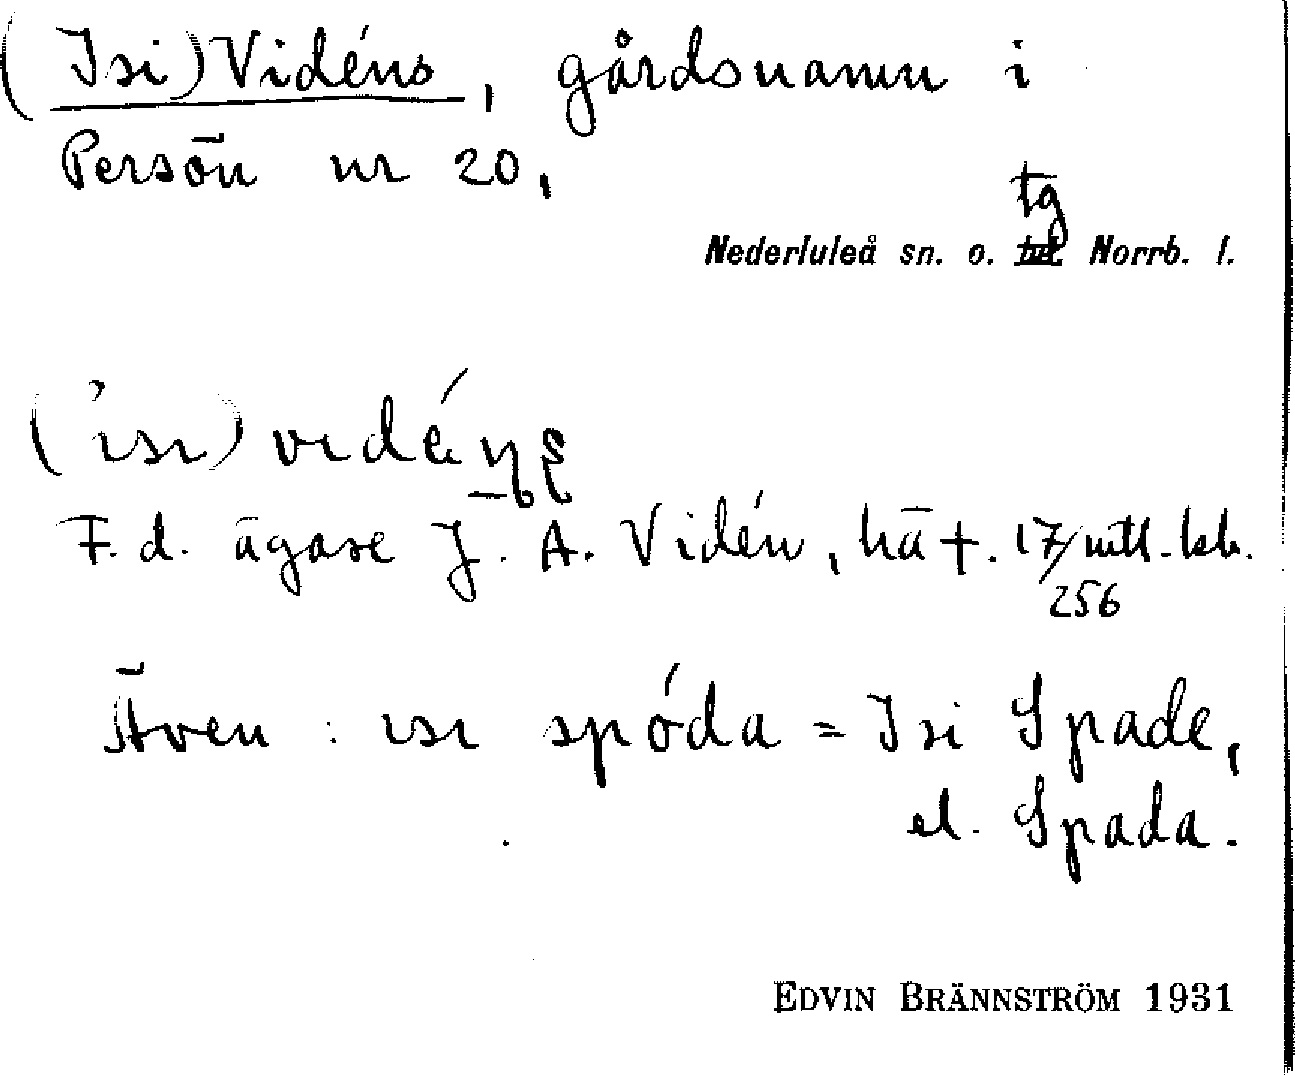 (Isi)Vidéns, gårdsnamn i
Persön nr 20,
tg
Nederluleå sn. o. hd. Norrb. l.
(ɪsɪ) vɪdé
F.d. ägare J. A. Vidén, hä †. 17/256 mtl.
Även : ɪsɪ spóda = Isi Spade,
el. Spada.
EDVIN BRÄNNSTRÖM 1931